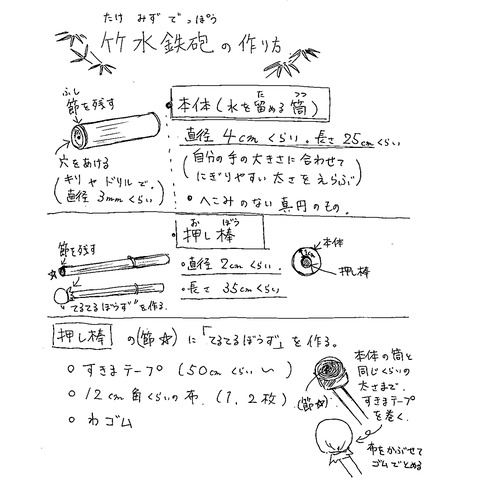 たけ みず でっぽう
竹水鉄砲の作り方
ふし
節を残す
穴をあける
(キリやドリルで、
直径3mmくらい)
本体(水を留める筒)
た つつ
直径4cmくらい。長さ25cmくらい
(自分の手の大きさに合わせて
にぎりやすい太さをえらぶ)
・へこみのない真円のもの。
お ぼう
・押し棒
節を残す
☆
"てるてるぼうず"を作る
・直径2cmくらい
・長さ35cmくらい
本体
押し棒
押し棒 の(節☆)に「てるてるぼうず」を作る。
○ すきまテープ(50cmくらい〜)
○ 12cm角くらいの布.(1,2枚)
○ わゴム
(節☆)
本体の筒と
同じくらいの
太さまで、
すきまテープ
を巻く。
布をかぶせて
ゴムでとめる